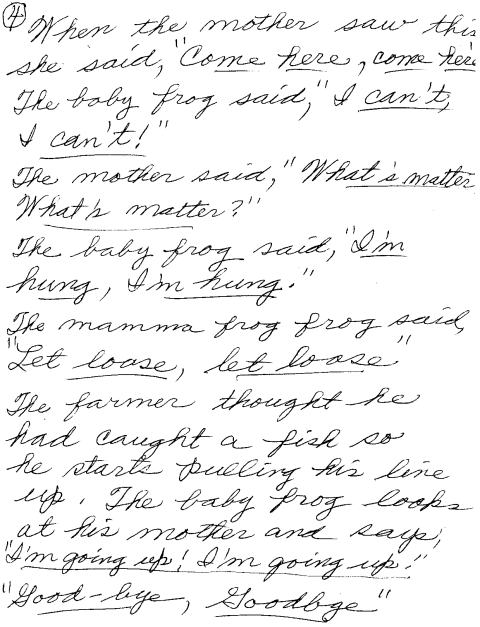 ④ When the mother saw this
she said, "Come here, come here
The baby frog said, "I can't,
I can't!"
The mother said, "What's matter
What's matter?"
The baby frog said, "I'm
hung, I'm hung."
The mamma frog frog said,
"Let loose, let loose"
The farmer thought he
had caught a fish so
he starts pulling his line
up. The baby frog looks
at his mother and says,
"I'm going up! I'm going up!"
"Good-bye, Goodbye"